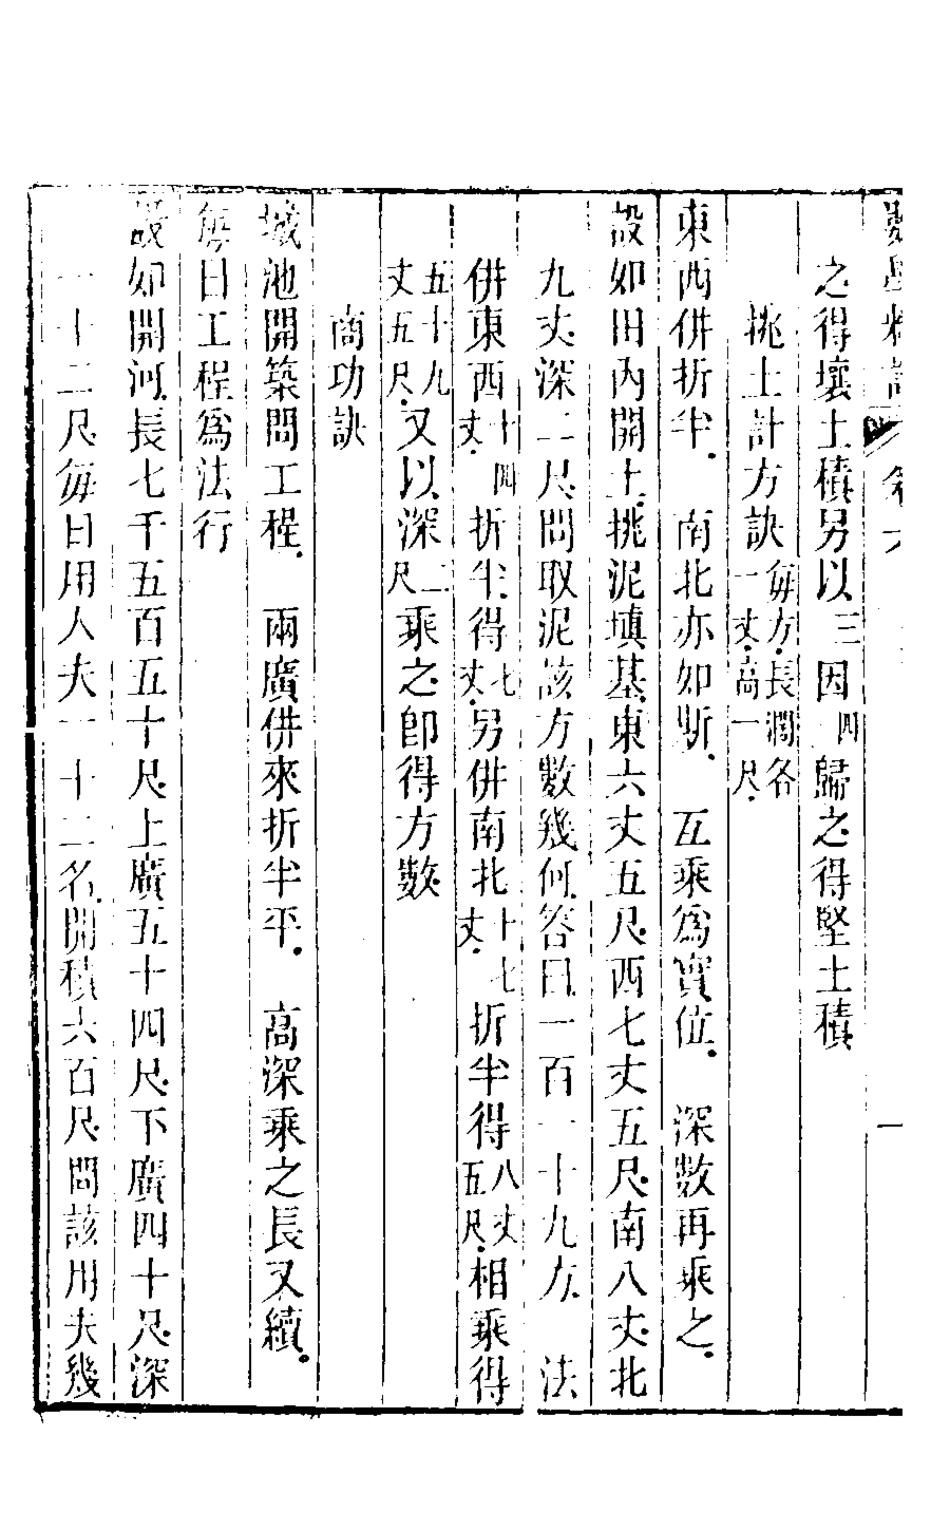 之得壤土積另以三因四歸之得堅土積
挑土計方訣每方長濶各一丈高一尺
東西併折半 南北亦如斯 互乘爲實位 深數再乘之
設如田內開土挑泥塡基東六丈五尺西七丈五尺南八丈北
九丈深二尺問取泥該方數幾何答曰一百一十九方 法
併東西十四丈折半得七丈另併南北十七丈折半得八丈五尺相乘得
五十九丈五尺又以深二尺乘之卽得方數
商功訣
城池開築問工程 兩廣併來折半平 高深乘之長又續
每日工程爲法行
設如開河長七千五百五十尺上廣五十四尺下廣四十尺深
一十二尺每日用人夫一十二名開積六百尺問該用夫幾